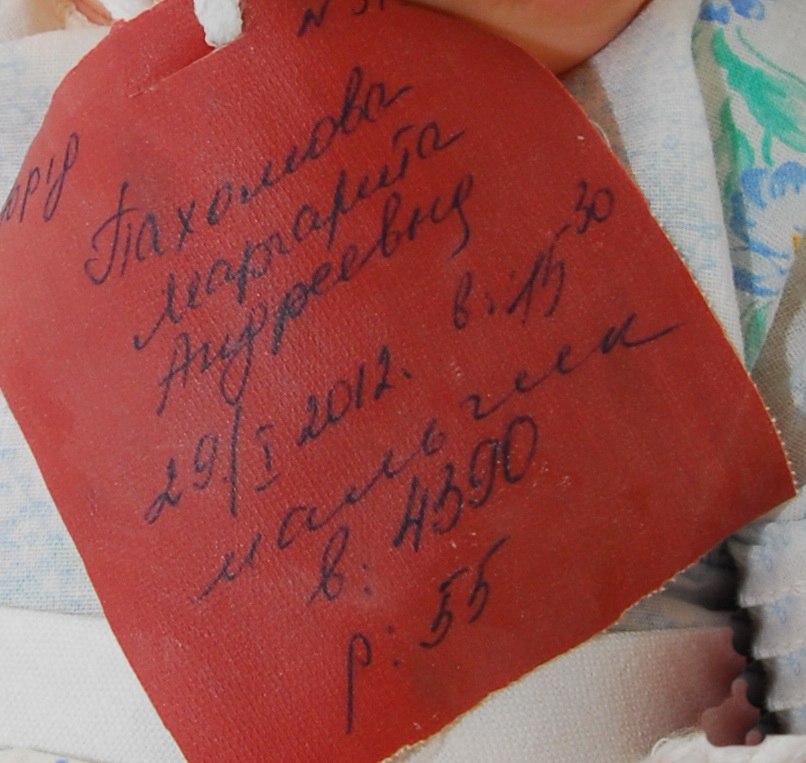 N
Пахомова
Маргарита
Андреевна
29/I 2012. в: 15 30
мальчик
в: 4390
р: 55